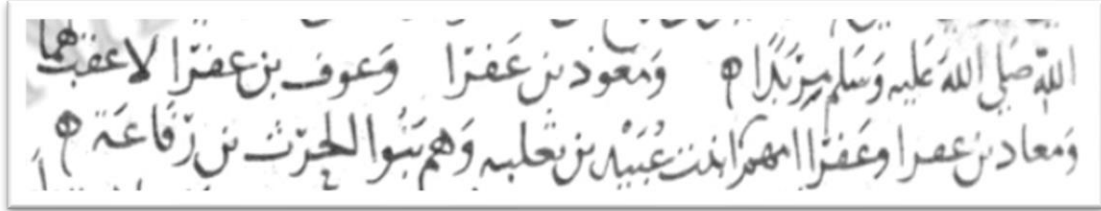 الله صلى الله عليه وسلم مربدا ومعوذ بن عفرا وعوف بن عفرا لا عقب لهما
ومعاذ بن عفرا وعفرا امهم ابنت عبيد بن ثعلبه وهم بنوا الحرث بن رفاعة